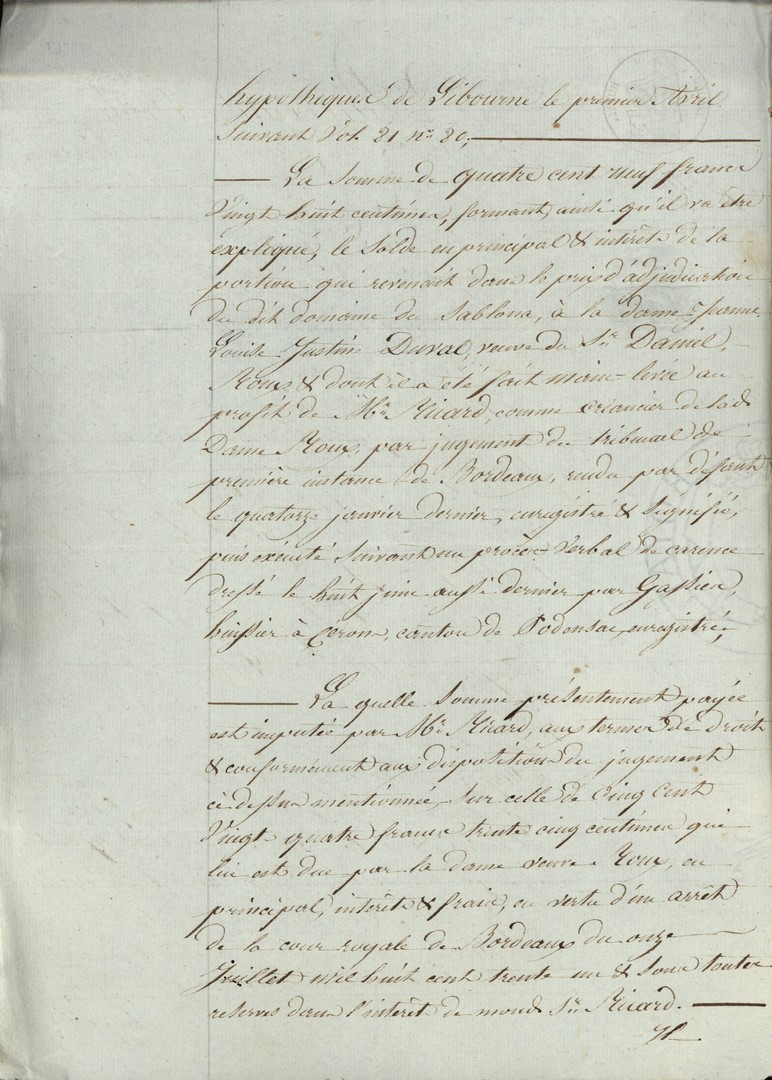 hypothèques de Libourne le premier Avril
suivant Vol. 81 n.° 80;
La somme de quatre cent neuf francs
Vingt huit centimes, formant, ainsi qu'il va être
expliqué, le solde en principal & intérêts de la
portion qui revenait dans le prix d'adjudication
du dit domaine de Sablons, à la dame Jeanne
Louise Justine Duval, veuve du S.r Daniel
Roux & dont il a été fait main-levée au
profit de M.r Ricard, comme créancier de lad.
Dame Roux, par jugement du tribunal de
première instance de Bordeaux, rendu par défaut
le quatorze janvier dernier, enregistré & signifié,
puis exécuté suivant un procès-verbal de carence
dressé le huit juin aussi dernier par Gassien,
huissier à Cérons, canton de Podensac, enregistré;
La quelle somme présentement payée
est imputée par M.r Ricard, aux termes de droit
& conformément aux dispositions du jugement
ci dessus mentionnée, sur celle de Cinq cent
Vingt quatre francs trente cinq centimes qui
lui est due par la dame veuve Roux, en
principal, intérêts & frais, en vertu d'un arrêt
de la cour royale de Bordeaux du onze
Juillet mil huit cent trente un & sous toutes
reserves dans l'intérêt de mond. S.r Ricard.